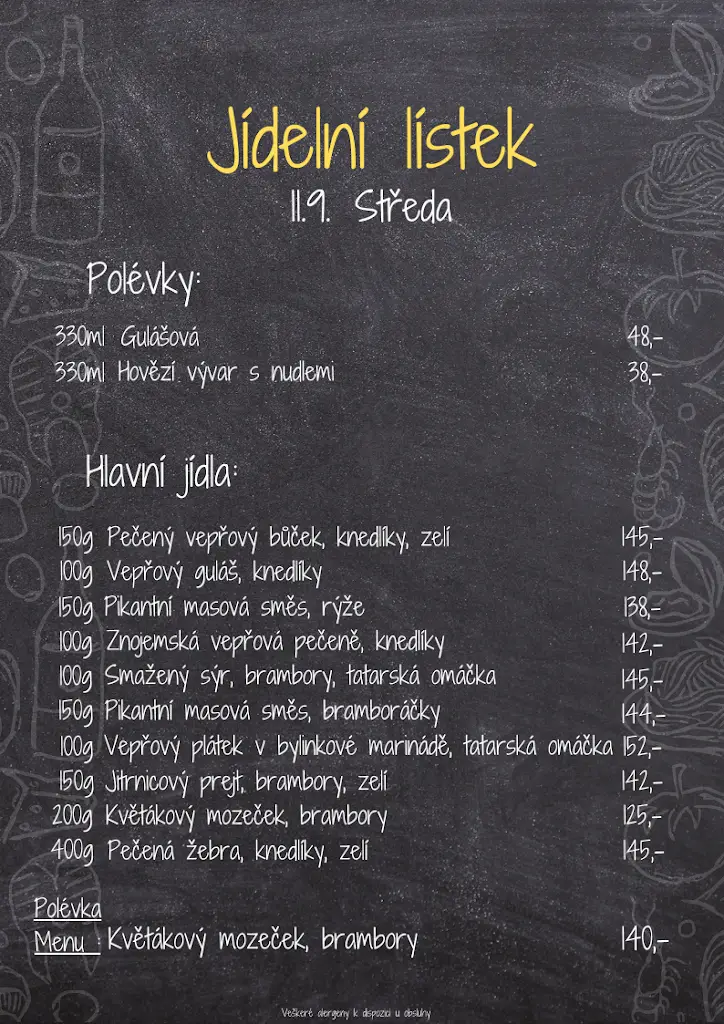 Jídelní lístek
11.9. Středa
Polévky:
330ml Gulášová 48,-
330ml Hovězí vývar s nudlemi 38,-
Hlavní jídla:
150g Pečený vepřový bůček, knedlíky, zelí 145,-
100g Vepřový guláš, knedlíky 148,-
150g Pikantní masová směs, rýže 138,-
100g Znojemská vepřová pečeně, knedlíky 142,-
100g Smažený sýr, brambory, tatarská omáčka 145,-
150g Pikantní masová směs, bramboráčky 144,-
100g Vepřový plátek v bylinkové marinádě, tatarská omáčka 152,-
150g Jitrnicový prejt, brambory, zelí 142,-
200g Květákový mozeček, brambory 125,-
400g Pečená žebra, knedlíky, zelí 145,-
Polévka
Menu : Květákový mozeček, brambory 140,-
Veškeré alergeny k dispozici u obsluhy